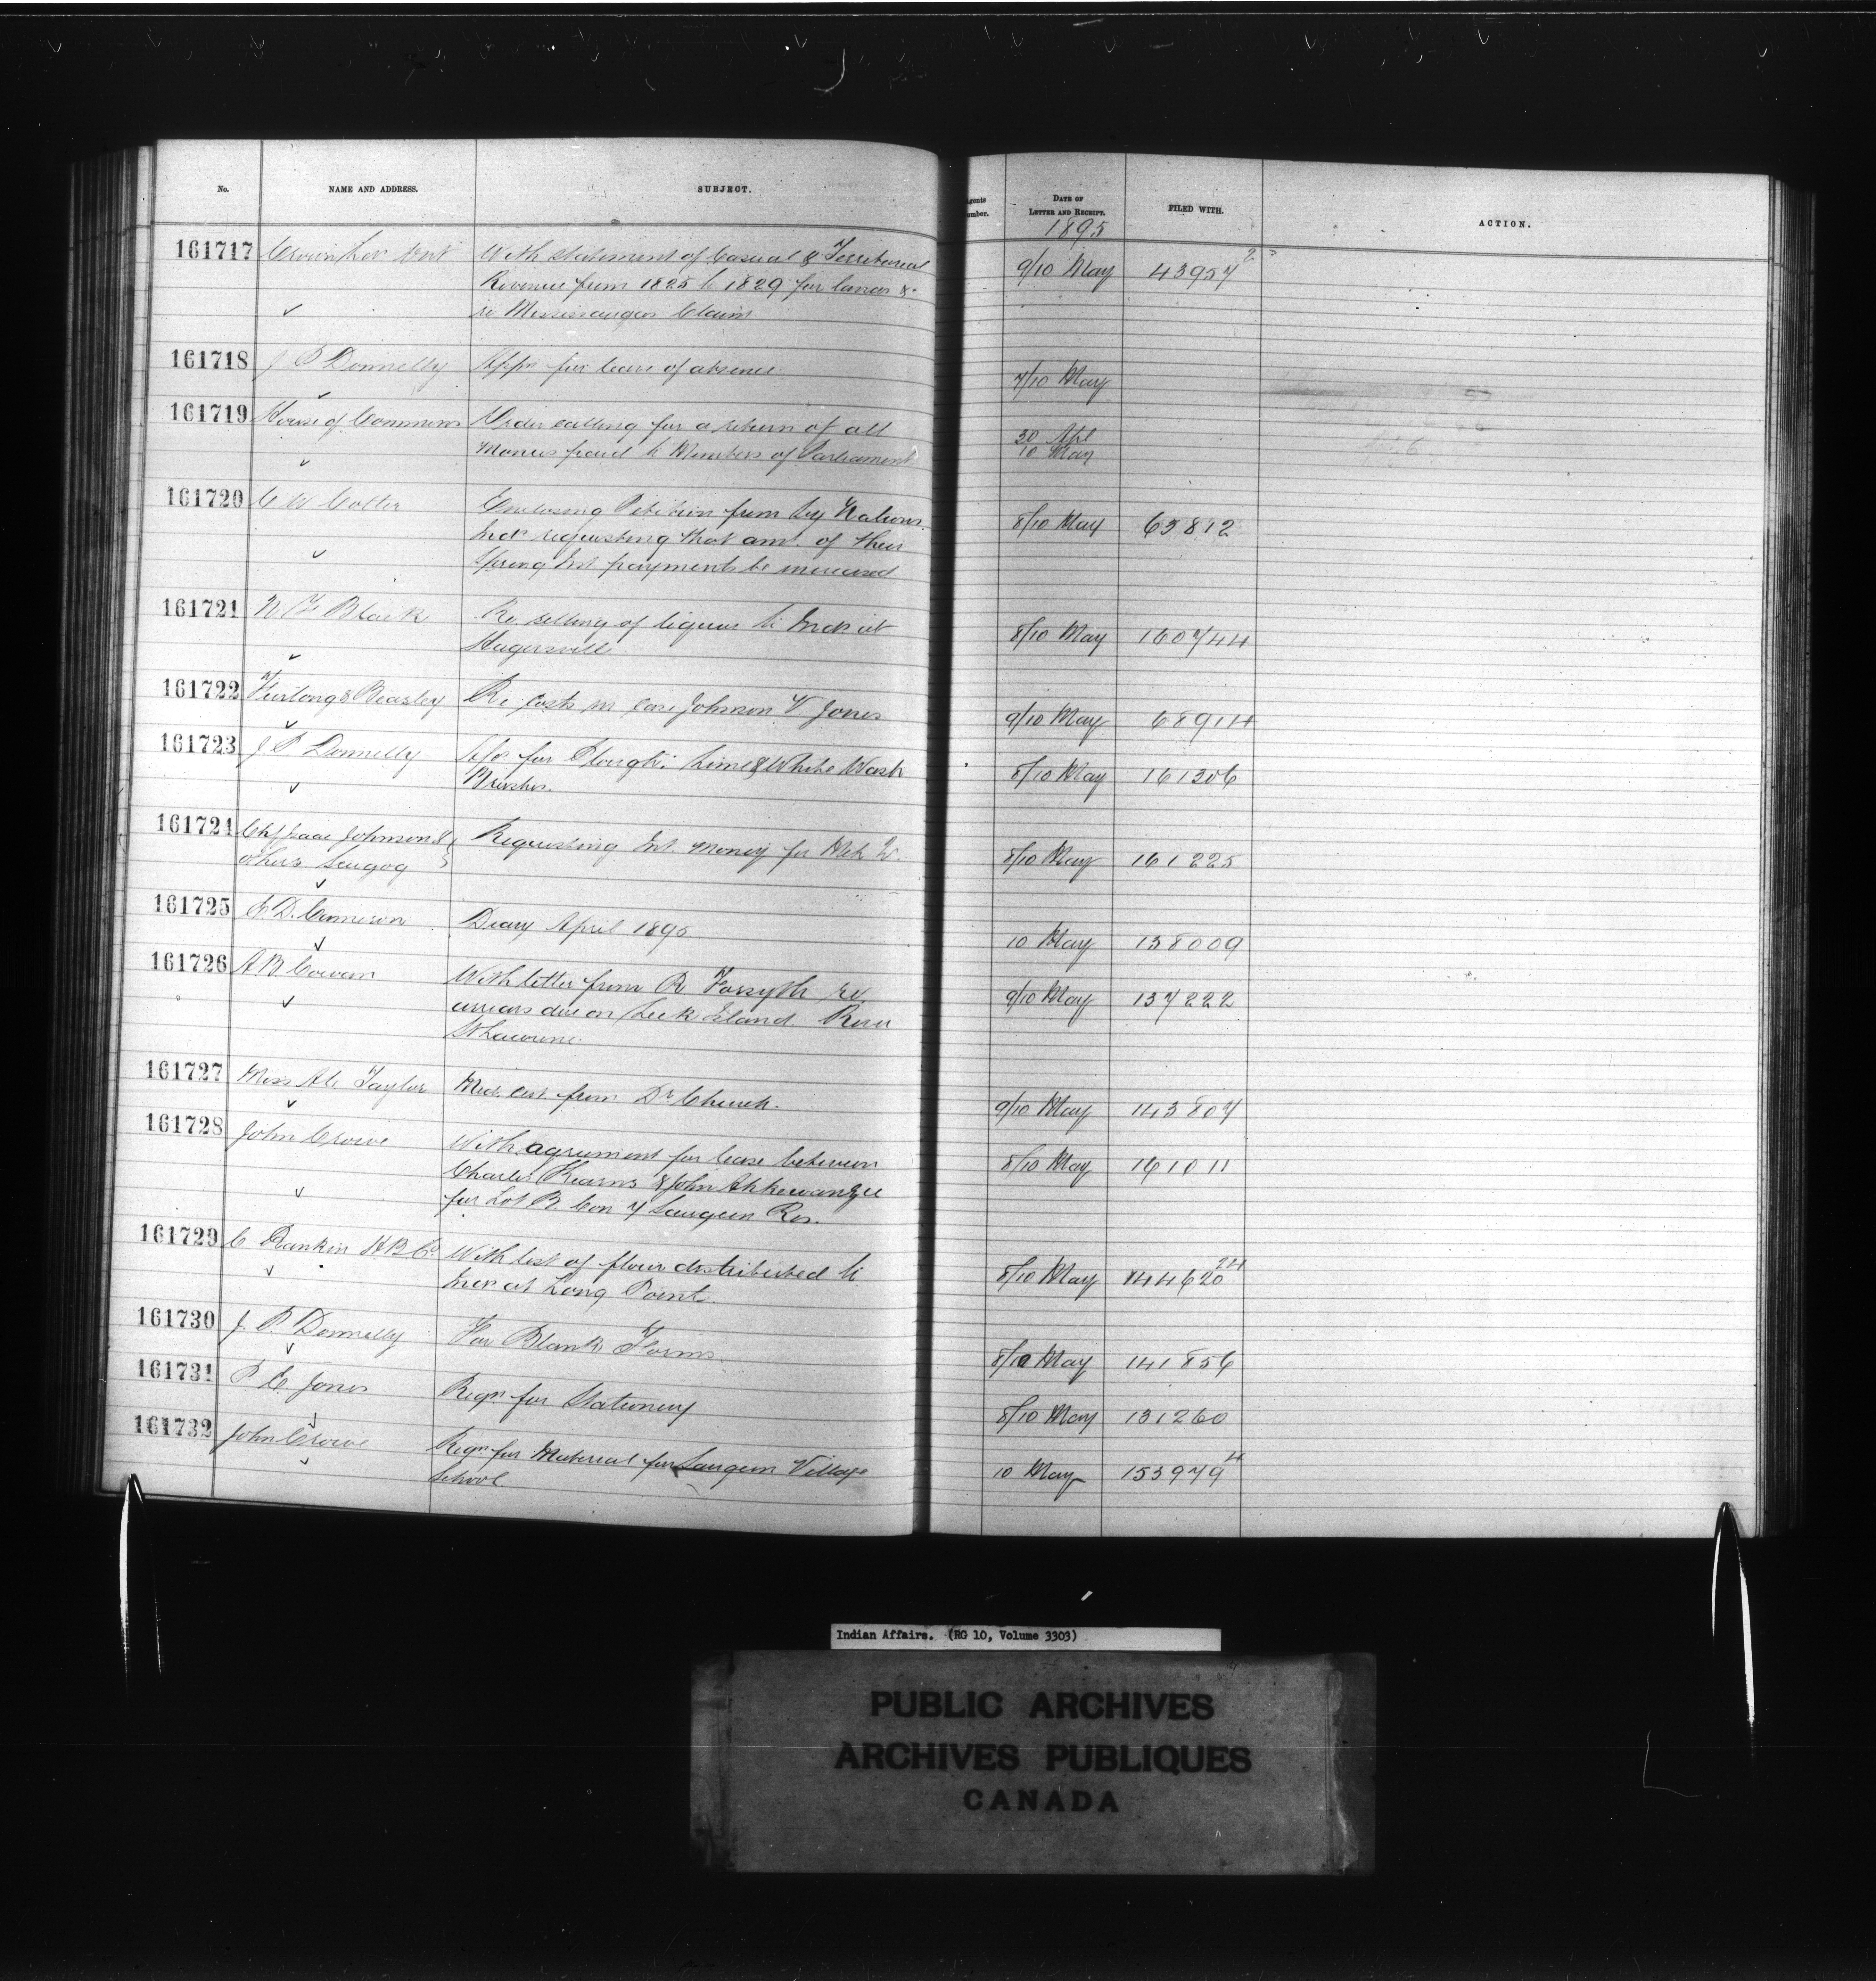 No.
NAME AND ADDRESS.
SUBJECT.
Agents
Number.
DATE OF
LETTER AND RECEIPT.
FILED WITH.
ACTION.
1895
161717 Crown With statement of Casual & Territorial 9/10 May 43957
Revenue from 1825 to 1829 for lands &
re Mississaugas Claim
161718 J P Donnelly Appn for leave of absence 7/10 May
161719 House of Commons Order calling for a return of all 30 Apl
Monies paid to Members of Parliament 10 May
161720 C W Colter Enclosing Petition from Six Nations 8/10 May 63812
Inds requesting that amt. of their
Spring Int payments be increased
161721 Black Re selling of liquor to Inds at 8/10 May 160744
Hagersville
161722 Furlong & Beasley Re costs in case Johnson V Jones 9/10 May 68914
161723 J P Donnelly for Plough: Lime & White Wash 8/10 May 161306
Brushes.
161724 Chf Isaac Johnson & Requesting Int. money for 8/10 May 161225
others Scugog
161725 E D. Cameron Diary April 1895 10 May 138009
161726 A B Cowan With letter from R Forsyth re 9/10 May 137222
arrears due on Leek Island River
St Lawrence
161727 Miss Taylor Med. cert from Dr Church. 9/10 May 143807
161728 John Crowe With agreement for lease between 8/10 May 161011
Charles Kearns & John Ahkewanzee
for Lot B Con 7 Saugeen Res.
161729 C Rankin H B Co With list of flour distributed to 8/10 May 144620 24
Inds at Long Point.
161730 J. P. Donnelly For Blank Forms 8/10 May 141856
161731 P E Jones Reqn for Stationery 8/10 May 131260
161732 John Crowe Reqn for Material for Saugeen Village 10 May 153979 4
School
Indian Affairs. (RG 10, Volume 3303)
PUBLIC ARCHIVES
ARCHIVES PUBLIQUES
CANADA